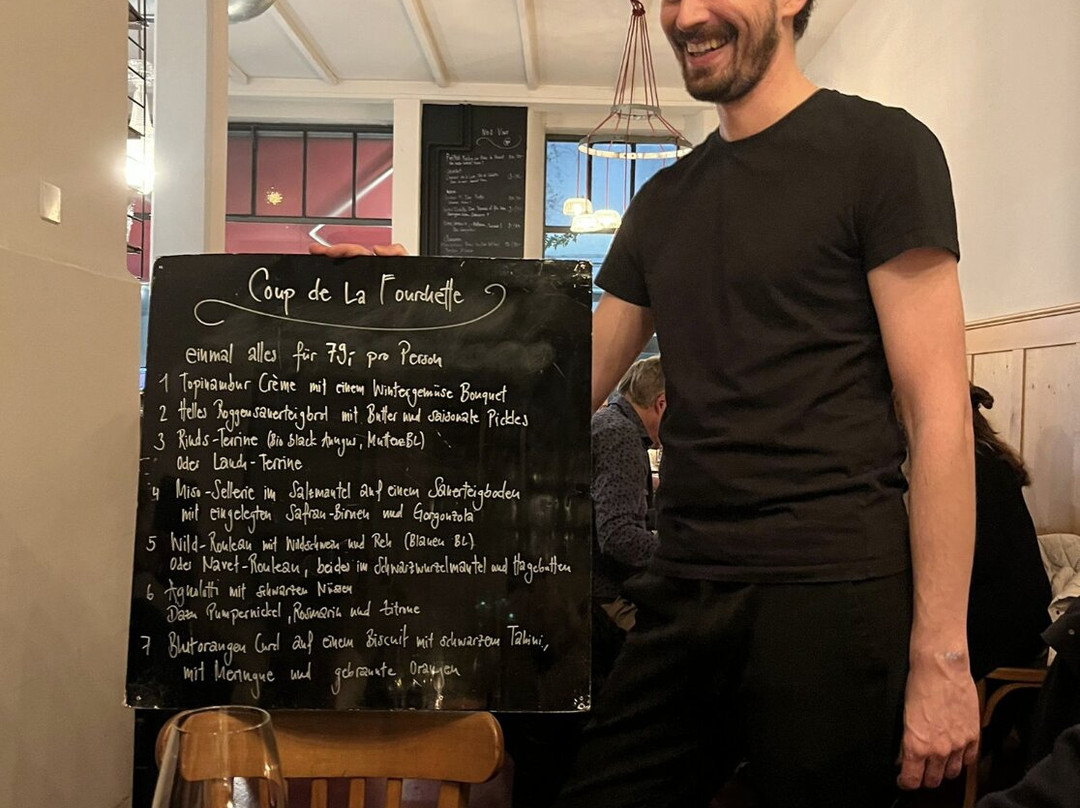 Coup de La Fourchette
einmal alles für 79,- pro Person
1 Topinambur Crème mit einem Wintergemüse Bouquet
2 Helles Roggensauerteigbrot mit Butter und saisonale Pickles
3 Rinds-Terrine (Bio black Anngus, Muttenz BL)
Oder Lauch-Terrine
4 Miso-Sellerie im Salzmantel auf einem Sauerteigboden
mit eingelegten Safran-Birnen und Gorgonzola
5 Wild-Rouleau mit Wildschwein und Reh (Blauen BL)
Oder Navet-Rouleau, beides im Schwarzwurzelmantel und Hagebutten
6 Agnolotti mit schwarzen Nüssen
Dazu Pumpernickel, Rosmarin und Zitrone
7 Blutorangen Curd auf einem Biscuit mit schwarzem Tahini,
mit Meringue und gebrannte Orangen